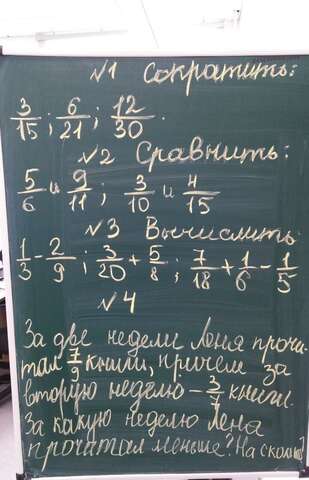 №1 Сократить:
3/15; 6/21; 12/30.
№2 Сравнить:
5/6 и 9/11; 3/10 и 4/15
№3 Вычислить
1/3 - 2/9; 3/20 + 5/8; 7/18 + 1/6 - 1/5
№4
За две недели Лёня прочи-
тал 7/9 книги, причем за
вторую неделю - 3/7 книги.
За какую неделю Лёна
прочитал меньше? На сколько?